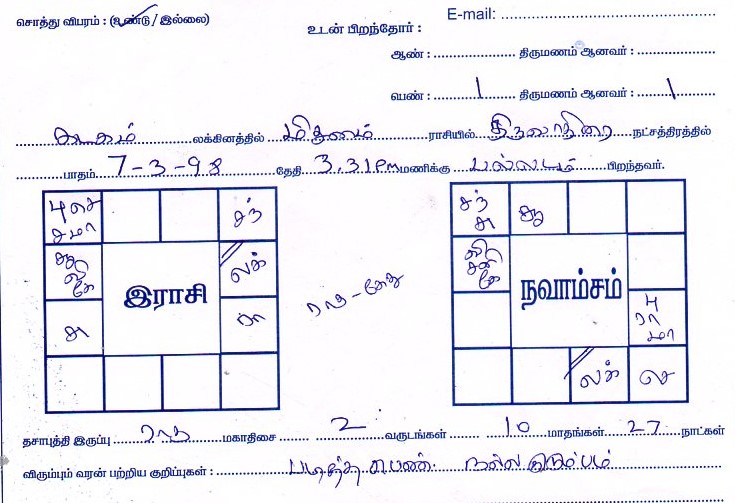 சொத்து விபரம் : (உண்டு / இல்லை)
E-mail:
உடன் பிறந்தோர் :
ஆண் : திருமணம் ஆனவர் :
பெண் : 1 திருமணம் ஆனவர் : 1
கடகம் லக்கினத்தில் மிதுனம் ராசியில் திருவாதிரை நட்சத்திரத்தில்
பாதம் 7-3-98 தேதி 3.31 Pm மணிக்கு பல்லடம் பிறந்தவர்.
சந்
லக்
இராசி
ரா
ராகு - கேது
சந்
நவாம்சம்
லக்
தசாபுத்தி இருப்பு ராகு மகாதிசை 2 வருடங்கள் 10 மாதங்கள் 27 நாட்கள்
விரும்பும் வரன் பற்றிய குறிப்புகள் : படித்த பெண். நல்ல குடும்பம்